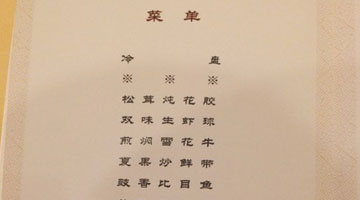 菜单
冷盘
※ ※ ※
松茸炖花胶
双味生虾球
煎焖雪花牛
夏果炒鲜带
豉香比目鱼